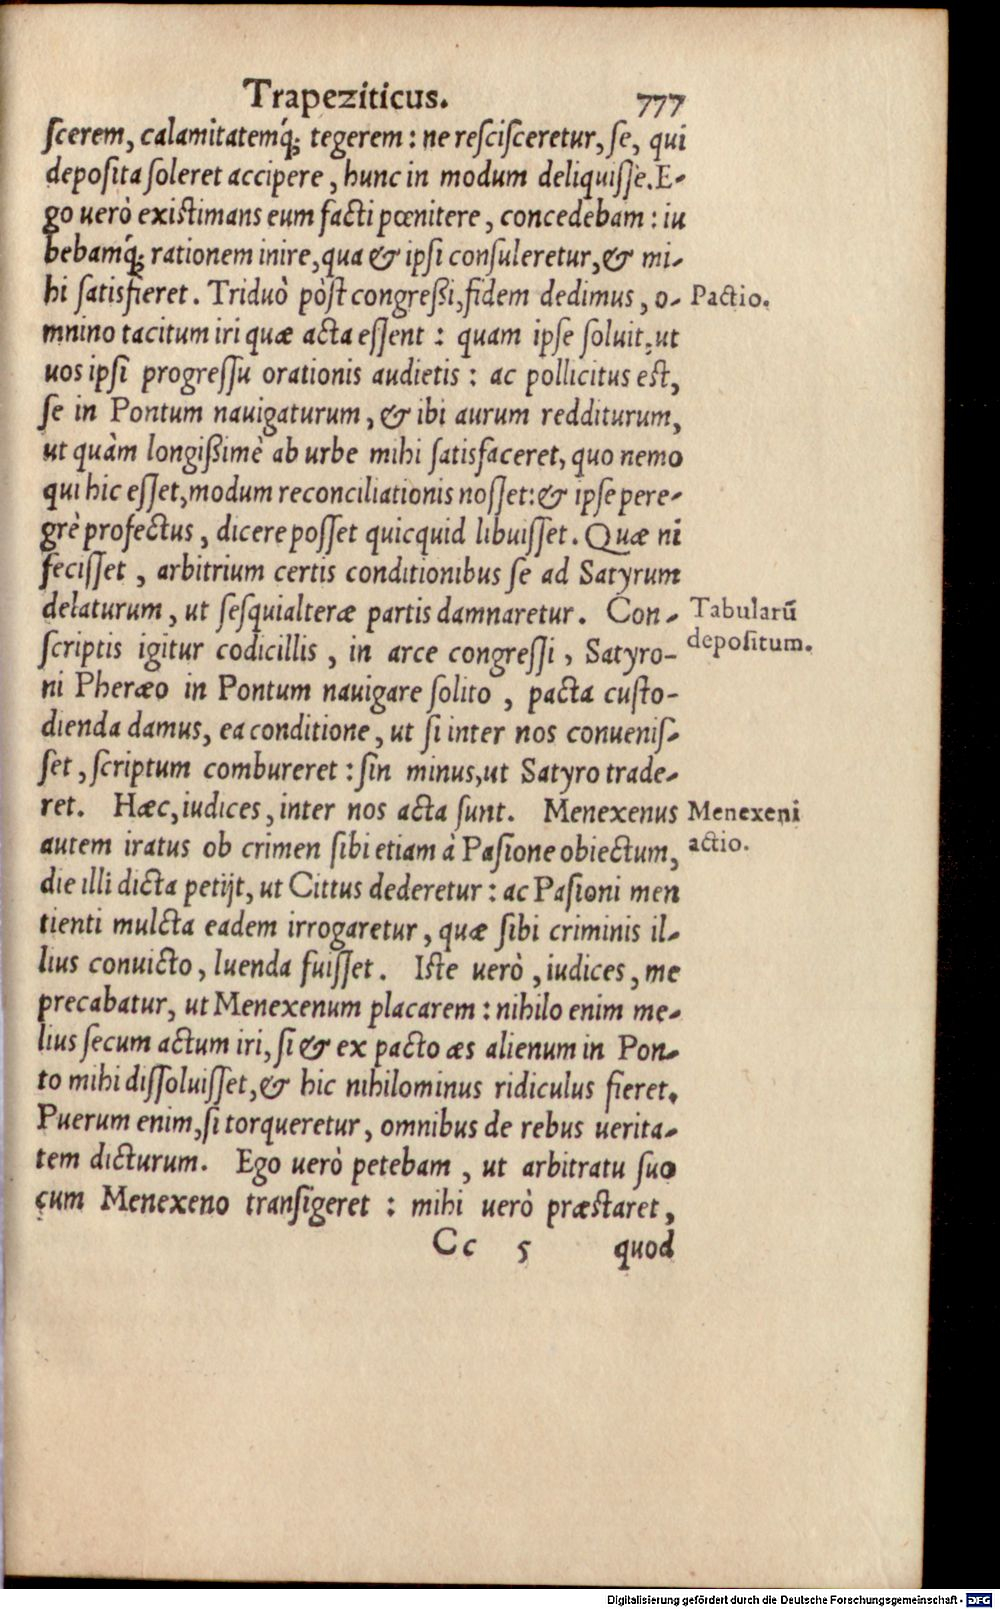 Trapeziticus. 777
ſcerem, calamitatemq́; tegerem: ne reſciſceretur, ſe, qui
depoſita ſoleret accipere, hunc in modum deliquiſſe. E-
go uerò existimans eum facti pœnitere, concedebam: iu
bebamq́; rationem inire, qua & ipſi conſuleretur, & mi-
hi ſatisfieret. Triduò pòst congreßi, fidem dedimus, o-
Pactio.
mnino tacitum iri quæ acta eſſent: quam ipſe ſoluit, ut
uos ipſi progreſſu orationis audietis: ac pollicitus est,
ſe in Pontum nauigaturum, & ibi aurum redditurum,
ut quàm longißimè ab urbe mihi ſatisfaceret, quo nemo
qui hic eſſet, modum reconciliationis noſſet: & ipſe pere-
grè profectus, dicere poſſet quicquid libuiſſet. Quæ ni
feciſſet, arbitrium certis conditionibus ſe ad Satyrum
delaturum, ut ſeſquialteræ partis damnaretur. Con-
Tabularū
depoſitum.
ſcriptis igitur codicillis, in arce congreſſi, Satyro-
ni Pheræo in Pontum nauigare ſolito, pacta cuſto-
dienda damus, ea conditione, ut ſi inter nos conueniſ-
ſet, ſcriptum combureret: ſin minus, ut Satyro trade-
ret. Hæc, iudices, inter nos acta ſunt. Menexenus
Menexeni
actio.
autem iratus ob crimen ſibi etiam à Paſione obiectum,
die illi dicta petijt, ut Cittus dederetur: ac Paſioni men
tienti mulcta eadem irrogaretur, quæ ſibi criminis il-
lius conuicto, luenda fuiſſet. Iste uerò, iudices, me
precabatur, ut Menexenum placarem: nihilo enim me-
lius ſecum actum iri, ſi & ex pacto æs alienum in Pon-
to mihi diſſoluiſſet, & hic nihilominus ridiculus fieret.
Puerum enim, ſi torqueretur, omnibus de rebus uerita-
tem dicturum. Ego uerò petebam, ut arbitratu ſuo
cum Menexeno tranſigeret: mihi uerò præstaret,
Cc 5 quod
Digitalisierung gefördert durch die Deutsche Forschungsgemeinschaft - DFG